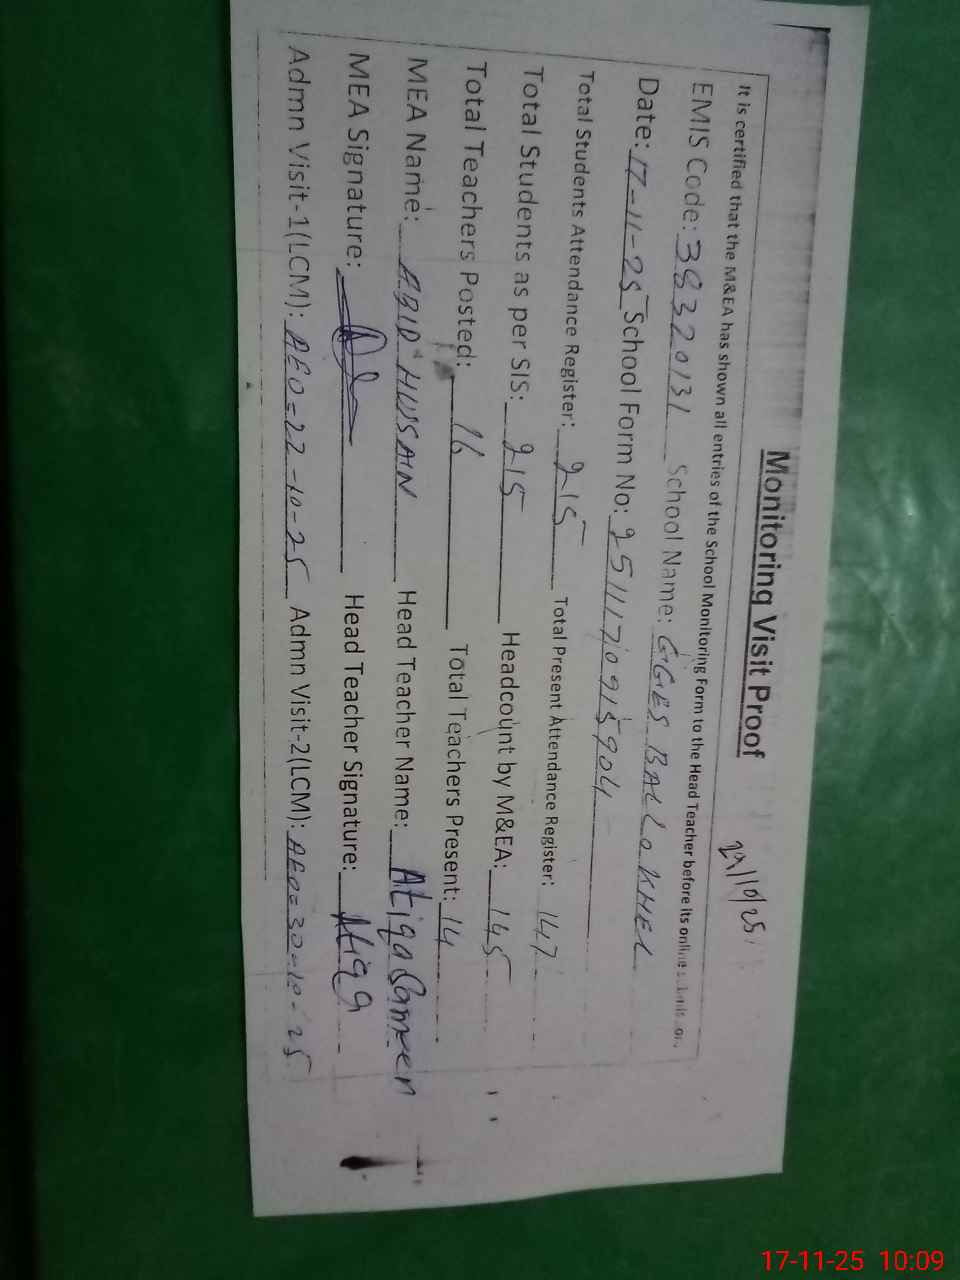 Monitoring Visit Proof
29/10/25
It is certified that the M&EA has shown all entries of the School Monitoring Form to the Head Teacher before its online
EMIS Code: 38320131 School Name: GGES BALLO KHEL
Date: 17-11-25 School Form No: 2511170915904
Total Students Attendance Register: 215 Total Present Attendance Register: 147
Total Students as per SIS: 215 Headcount by M&EA: 145
Total Teachers Posted: 16 Total Teachers Present: 14
MEA Name: ABID HUSSAIN Head Teacher Name: Atiqa Samren
MEA Signature: Head Teacher Signature: Atiqa
Admn Visit-1(LCM): AEO=22-10-25 Admn Visit-2(LCM): AEO=30-10-25
17-11-25 10:09